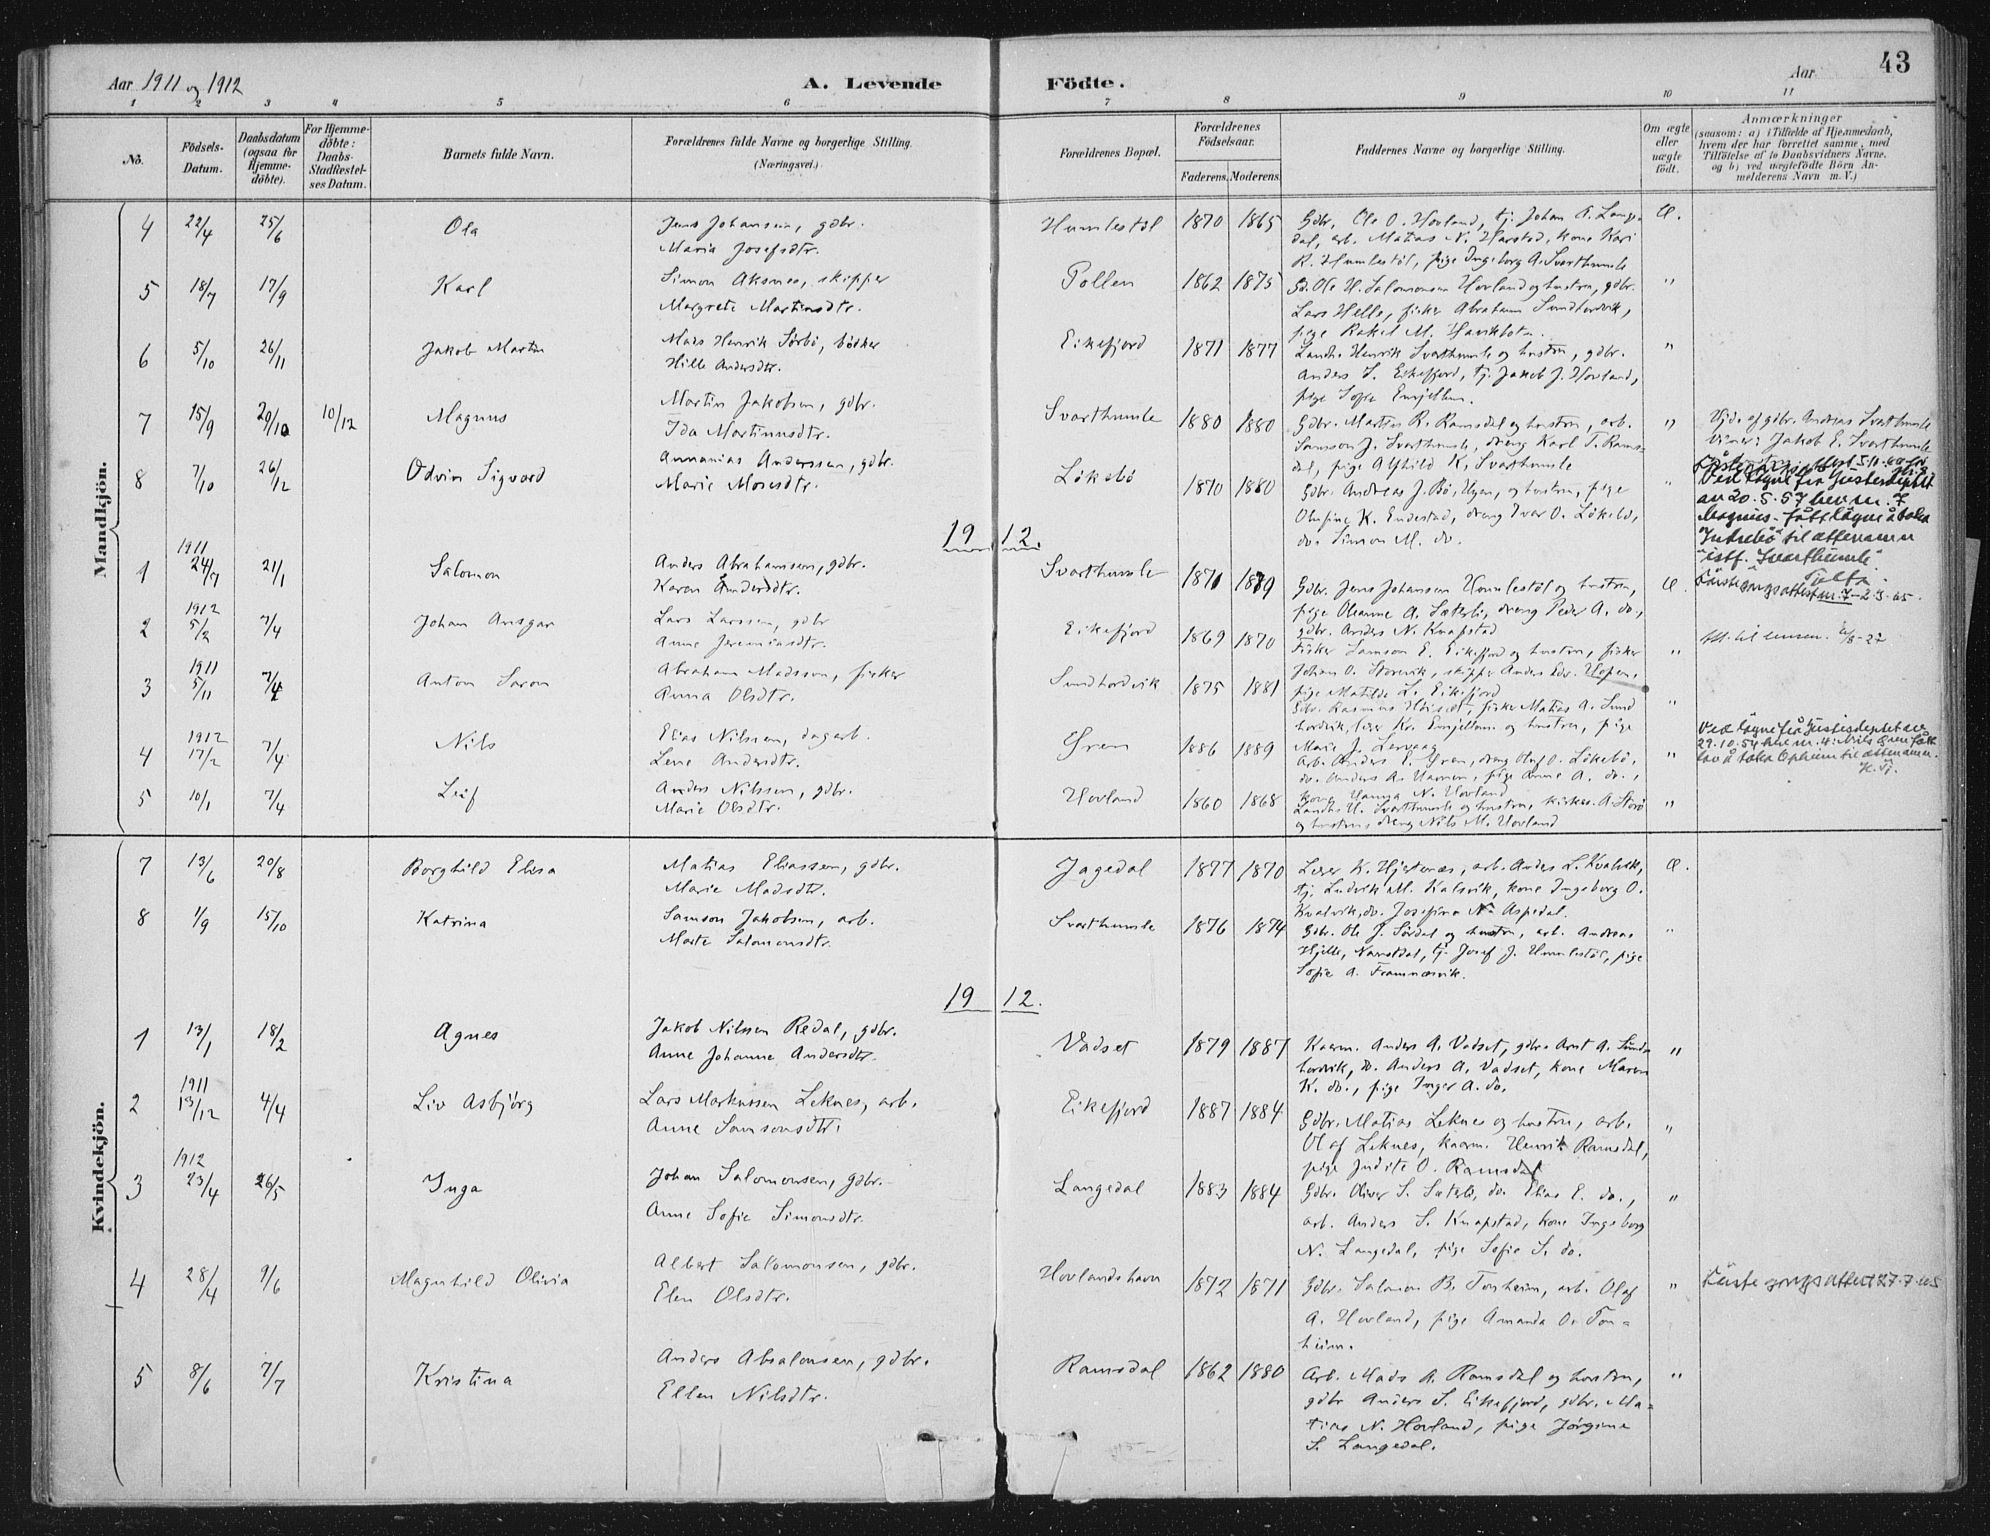 Aar 1911 og 1912
A. Levende
Födte.
Aar
43
1 2 3 4 5 6 7 8 9 10 11
No.
Födsels-Datum.
Daabsdatum (ogsaa for Hjemme-döbte).
For Hjemme-döbte: Daabs-Stadfæstel-ses Datum.
Barnets fulde Navn.
Forældrenes fulde Navne og borgerlige Stilling. (Næringsvei.)
Forældrenes Bopæl.
Forældrenes Födselsaar.
Faderens. Moderens.
Faddernes Navne og borgerlige Stilling.
Om ægte eller uægte födt.
Anmærkninger
(saasom: a) i Tilfælde af Hjemmedaab, hvem der har forrettet samme, med Tilföielse af to Daabsvidners Navne, og b) ved uægtefödte Börn An-melderens Navn m. V.)
Mandkjön.
4 22/4 25/6 Ola Jens Johansen, gdbr. Humlestöl 1870 1865 Gdbr. Ole O. Hovland, tj. Johan A. Lange- Æ.
Maria Josefsdtr. dal, arb. Matias N. Harstad, kone Kari
R. Humlestöl, pige Ingeborg A. Svarthumle
5 18/7 17/9 Karl Simon Aksnes, skipper Pollen 1862 1875 Gb. Ole H. Salomonsen Hovland og hustru, gdbr. "
Margrete Martinsdtr. Lars Helle, fisker Abraham Sundhordvik,
pige Rakel M.
6 5/10 26/11 Jakob Martin Mads Henrik Sörbö, bödker Eikefjord 1871 1877 Landh. Henrik Svarthumle og hustru, gdbr. "
Hille Andersdtr. Anders S. Eikefjord, tj. Jakob J. Hovland,
pige Sofie
7 15/9 29/10 10/12 Magnus Martin Jakobsen, gdbr. Svarthumle 1880 1880 Gdbr. Martin R. Ramsdal og hustru, arb. " Hjd. af gdbr. Andreas Svarthumle
Ida Martinusdtr. Samson J. Svarthumle, dreng Karl T. Rams- vidner: Jakob E. Svarthumle
dal, pige Alfhild K. Svarthumle
8 7/10 26/12 Odvin Sigvard Annanias Anderssen, gdbr. Lökebö 1870 1880 Gdbr. Andreas J. Bö, og hustru, pige "
Marie Mosesdtr. Olufine K. Endestad, dreng Iver O. Lökebö,
do. Simon M. do.
Ved løyve frå Justisdeptet
av 20.5.57 hev nr. 7
Magnus fått løyve å taka
Indrebö til ættenamn
istf. Svarthumle.
1912.
1911
1 24/7 21/1 Salomon Anders Abrahamsen, gdbr. Svarthumle 1871 1879 Gdbr. Jens Johansen Humlestöl og hustru, Æ.
Karen Andersdtr. pige Oleanne A. Sæterli, dreng Peder A. do.,
gdbr. Anders N. Knapstad
1912
2 5/2 7/4 Johan Ansgar Lars Larssen, gdbr Eikefjord 1869 1870 Fisker Samson E. Eikefjord og hustru, fisker "
Anne Jeremiasdtr. Johan O. Storevik, skipper Anders Edv. Hopen,
pige Matilde L. Eikefjord
1911
3 5/11 7/4 Anton Saron Abraham Madssen, fisker Sundhordvik 1875 1881 Gdbr. Rasmus fisker Matias A. Sund "
Anna Olsdtr. hordvik, lærer Kr. og hustru, pige
Marie J.
1912
4 17/2 7/4 Nils Elias Nilssen, dagarb. Gren 1886 1889 Arb. Anders Gren, dreng Oluf O. Lökebö, " Ved løyve frå Justisdeptet av
Lene Andersdtr. do. Anders A. pige Anne A. do., 29.10.54 hev nr. 4. Nils Gren fått
kone N. Hovland lov å taka Opheim til ættenamn.
5 10/1 7/4 Leif Anders Nilssen, gdbr. Hovland 1860 1868 Landh. H. Svarthumle og hustru, A. Storö "
Marie Olsdtr. og hustru, dreng Nils M. Hovland
Kvindekjön.
7 13/6 20/8 Borghild Elisa Matias Eliassen, gdbr. Jagedal 1877 1870 Lærer K. Hjertenæs, arb. Anders L. Kvalvik, Æ.
Marie Madsdtr. tj. Ludvik M. Kalsvik, kone Ingeborg O.
Kvalvik, do. Josefine N. Aspedal.
8 1/9 15/10 Katrina Samson Jakobsen, arb. Svarthumle 1876 1874 Gdbr. Ole J. Sördal og hustru, arb. Andreas "
Marte Salomonsdtr. Hjelle, Naustdal, tj. Josef J. Humlestöl, pige
Sofie A. Framnesvik.
1912.
1 13/1 18/2 Agnes Jakob Nilssen Redal, gdbr. Vadset 1879 1887 Kaarm. Anders A. Vadset, gdbr. Arnt A. Sund- "
Anne Johanne Andersdtr. hordvik, do. Anders A. Vadset, kone Maren
K. do., pige Inger A. do.
1911
2 13/12 4/4 Liv Asbjörg Lars Markussen Leknes, arb. Eikefjord 1887 1884 Gdbr. Matias Leknes og hustru, arb. "
Anne Samsonsdtr. Olaf Leknes, kaarm. Henrik Ramsdal,
pige Judite O. Ramsdal
1912
3 23/4 26/5 Inga Johan Salomonsen, gdbr. Langedal 1883 1884 Gdbr. Oliver S. Sæterli, do. Elias E. do., "
Anne Sofie Simonsdtr. arb. Anders S. Knapstad, kone Ingeborg
N. Langedal, pige Sofie S. do.
4 28/4 9/6 Magnhild Olivia Albert Salomonsen, gdbr. Hovlandshavn 1872 1871 Gdbr. Salomon B. Tonheim, arb. Olaf " 27.7.65
Elen Olsdtr. A. Hovland, pige Amanda O. Ton-
heim.
5 8/6 7/7 Kristina Anders Absalonsen, gdbr. Ramsdal 1862 1880 Arb. Mads A. Ramsdal og hustru, "
Ellen Nilsdtr. gdbr Anders S. Eikefjord, gdbr. Ma-
tias N. Hovland, pige Jörgine
S. Langedal.